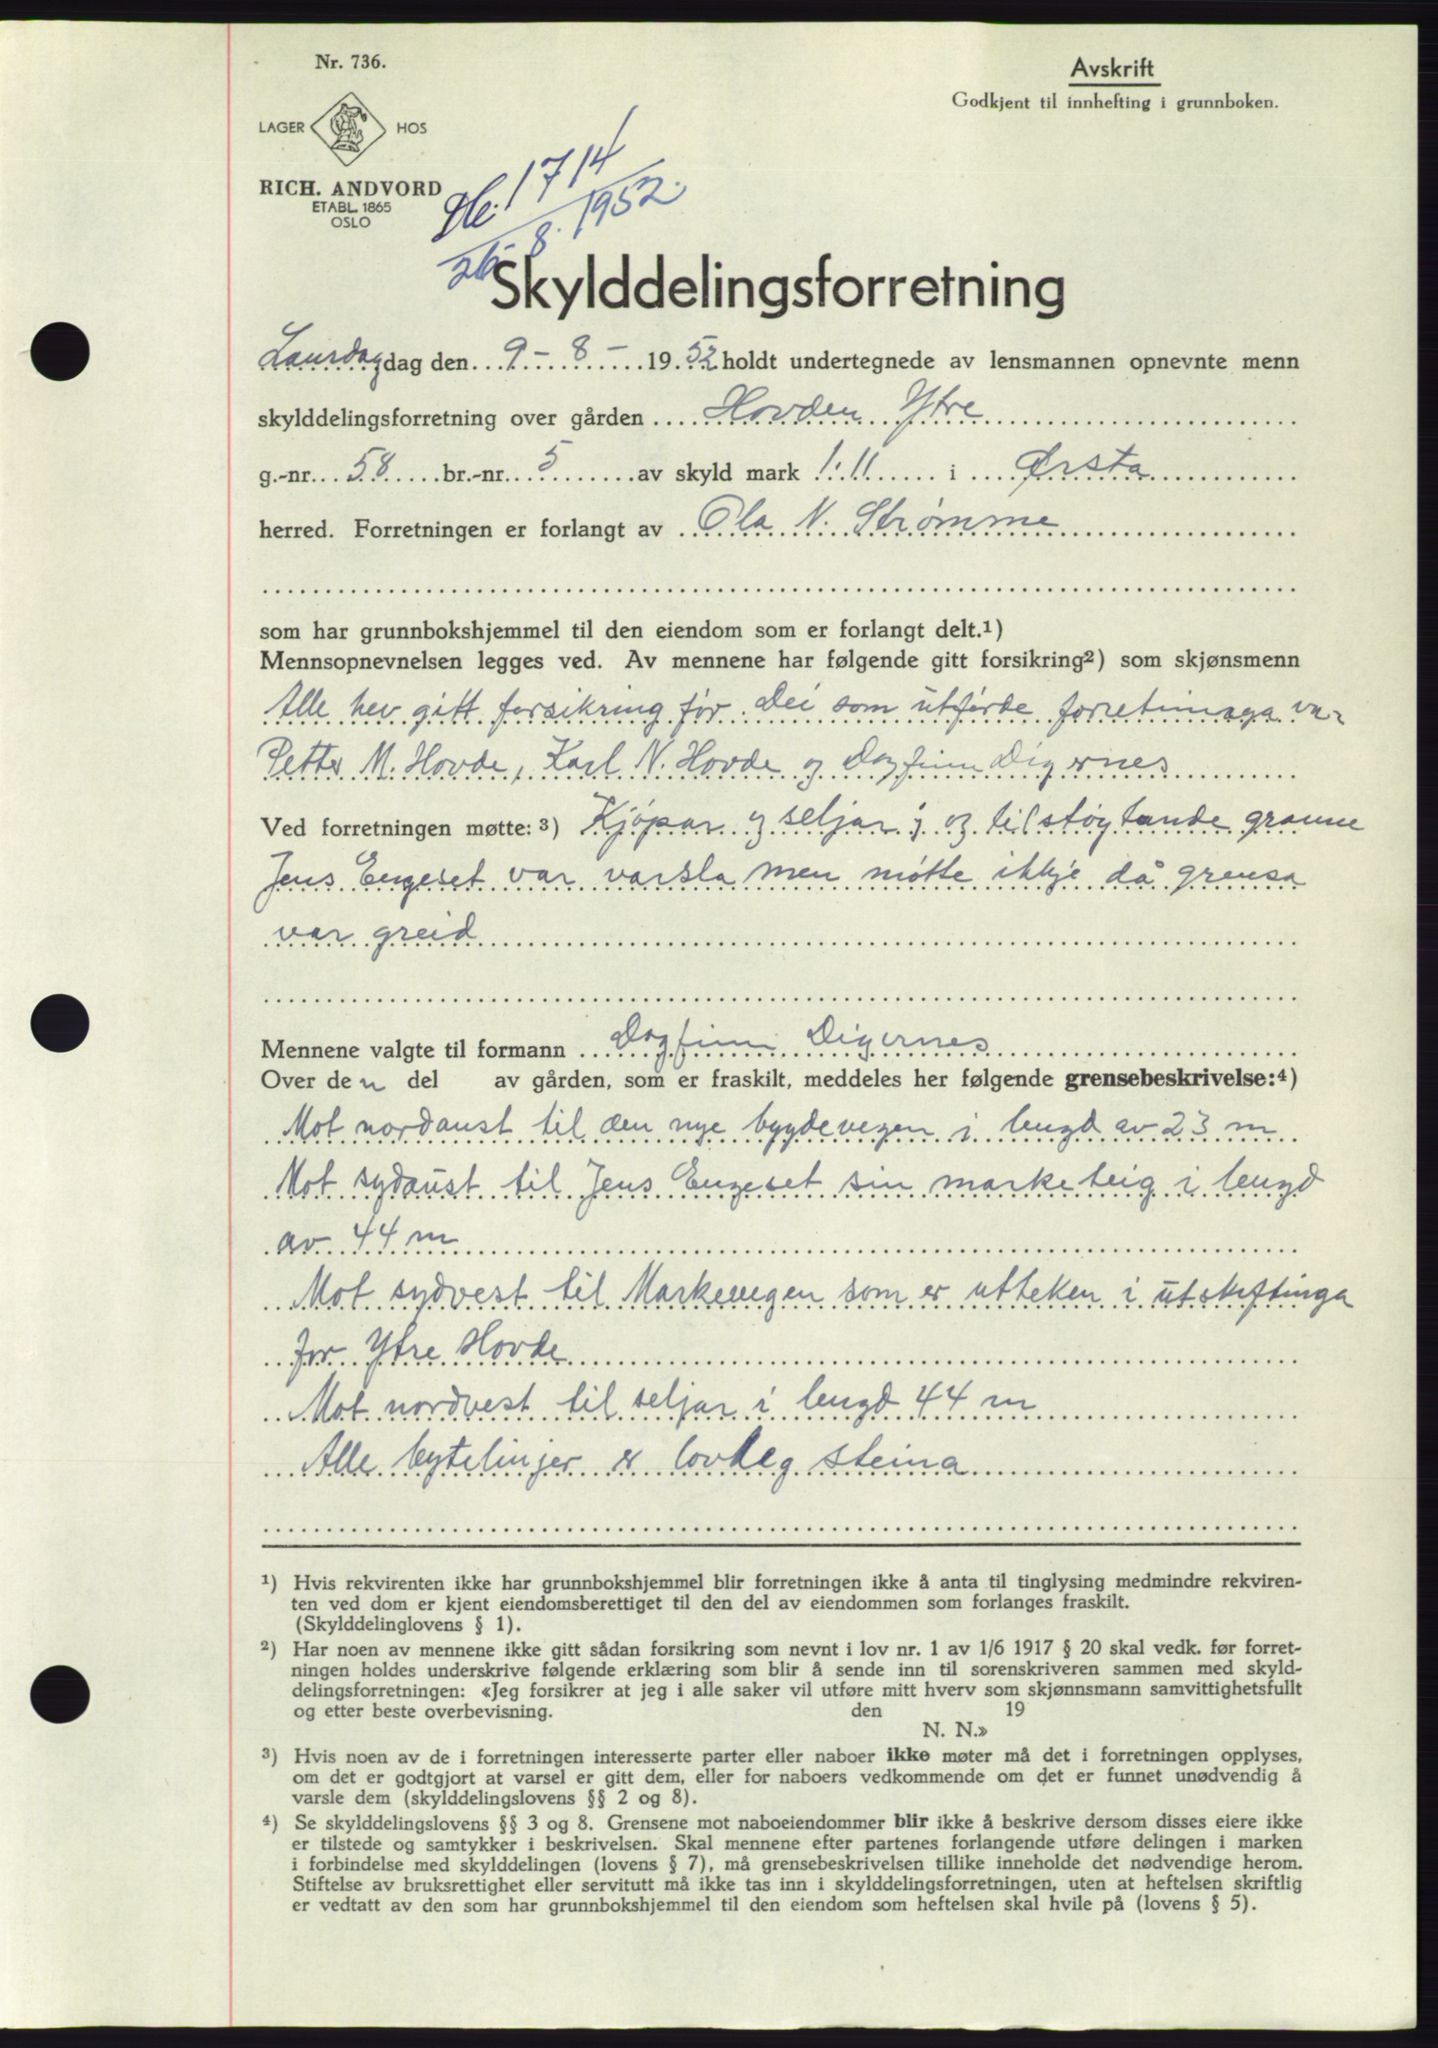 Nr. 736.
Avskrift
Godkjent til innhefting i grunnboken.
LAGER HOS
RICH. ANDVORD
ETABL. 1865
OSLO
1714
26 8. 1952.
Skylddelingsforretning
Laurdag dag den 9 - 8 - 1952 holdt undertegnede av lensmannen opnevnte menn
skylddelingsforretning over gården Hovden Ytre
g.-nr. 58 br.-nr. 5 av skyld mark 1.11 i Ørsta
herred. Forretningen er forlangt av Ola N. Strømme
som har grunnbokshjemmel til den eiendom som er forlangt delt.¹)
Mennsopnevnelsen legges ved. Av mennene har følgende gitt forsikring²) som skjønsmenn
Alle hev gitt forsikring før. Dei som utførde forretninga var
Petter M. Hovde, Karl N. Hovde og Dagfinn Digernes
Ved forretningen møtte: ³) Kjøpar og seljar; og tilstøytande granne
Jens Engeset var varsla men møtte ikkje då grensa
var greid
Mennene valgte til formann Dagfinn Digernes
Over den del av gården, som er fraskilt, meddeles her følgende grensebeskrivelse:⁴)
Mot nordaust til den nye bygdevegen i lengd av 23 m
Mot sydaust til Jens Engeset sin marketeig i lengd
av 44 m
Mot sydvest til Markevegen som er utteken i utskiftinga
for Ytre Hovde
Mot nordvest til seljar i lengd 44 m
Alle bytelinjer er lovleg steina
¹) Hvis rekvirenten ikke har grunnbokshjemmel blir forretningen ikke å anta til tinglysing medmindre rekviren-
ten ved dom er kjent eiendomsberettiget til den del av eiendommen som forlanges fraskilt.
(Skylddelinglovens § 1).
²) Har noen av mennene ikke gitt sådan forsikring som nevnt i lov nr. 1 av 1/6 1917 § 20 skal vedk. før forret-
ningen holdes underskrive følgende erklæring som blir å sende inn til sorenskriveren sammen med skyld-
delingsforretningen: «Jeg forsikrer at jeg i alle saker vil utføre mitt hverv som skjønnsmann samvittighetsfullt
og etter beste overbevisning. den 19
N. N.»
³) Hvis noen av de i forretningen interesserte parter eller naboer ikke møter må det i forretningen opplyses,
om det er godtgjort at varsel er gitt dem, eller for naboers vedkommende om det er funnet unødvendig å
varsle dem (skylddelingslovens §§ 2 og 8).
⁴) Se skylddelingslovens §§ 3 og 8. Grensene mot naboeiendommer blir ikke å beskrive dersom disses eiere ikke
er tilstede og samtykker i beskrivelsen. Skal mennene efter partenes forlangende utføre delingen i marken
i forbindelse med skylddelingen (lovens § 7), må grensebeskrivelsen tillike inneholde det nødvendige herom.
Stiftelse av bruksrettighet eller servitutt må ikke tas inn i skylddelingsforretningen, uten at heftelsen skriftlig
er vedtatt av den som har grunnbokshjemmel til den eiendom som heftelsen skal hvile på (lovens § 5).